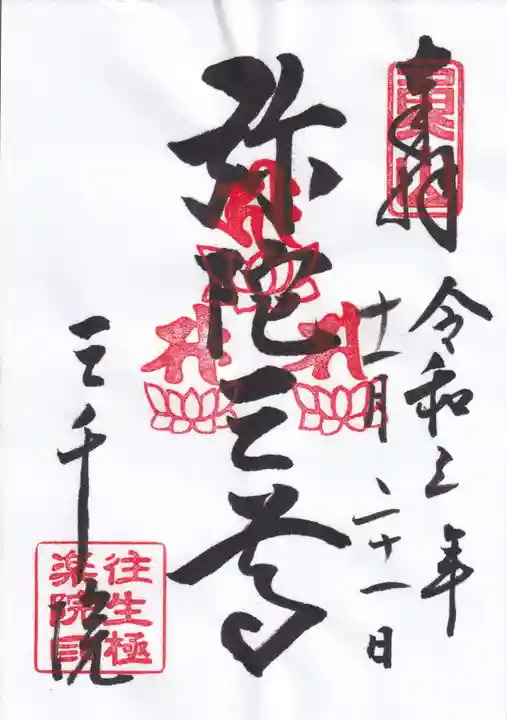 奉拝
東山
令和三年
十一月二十一日
弥陀三尊
三千院
往生極
楽院印